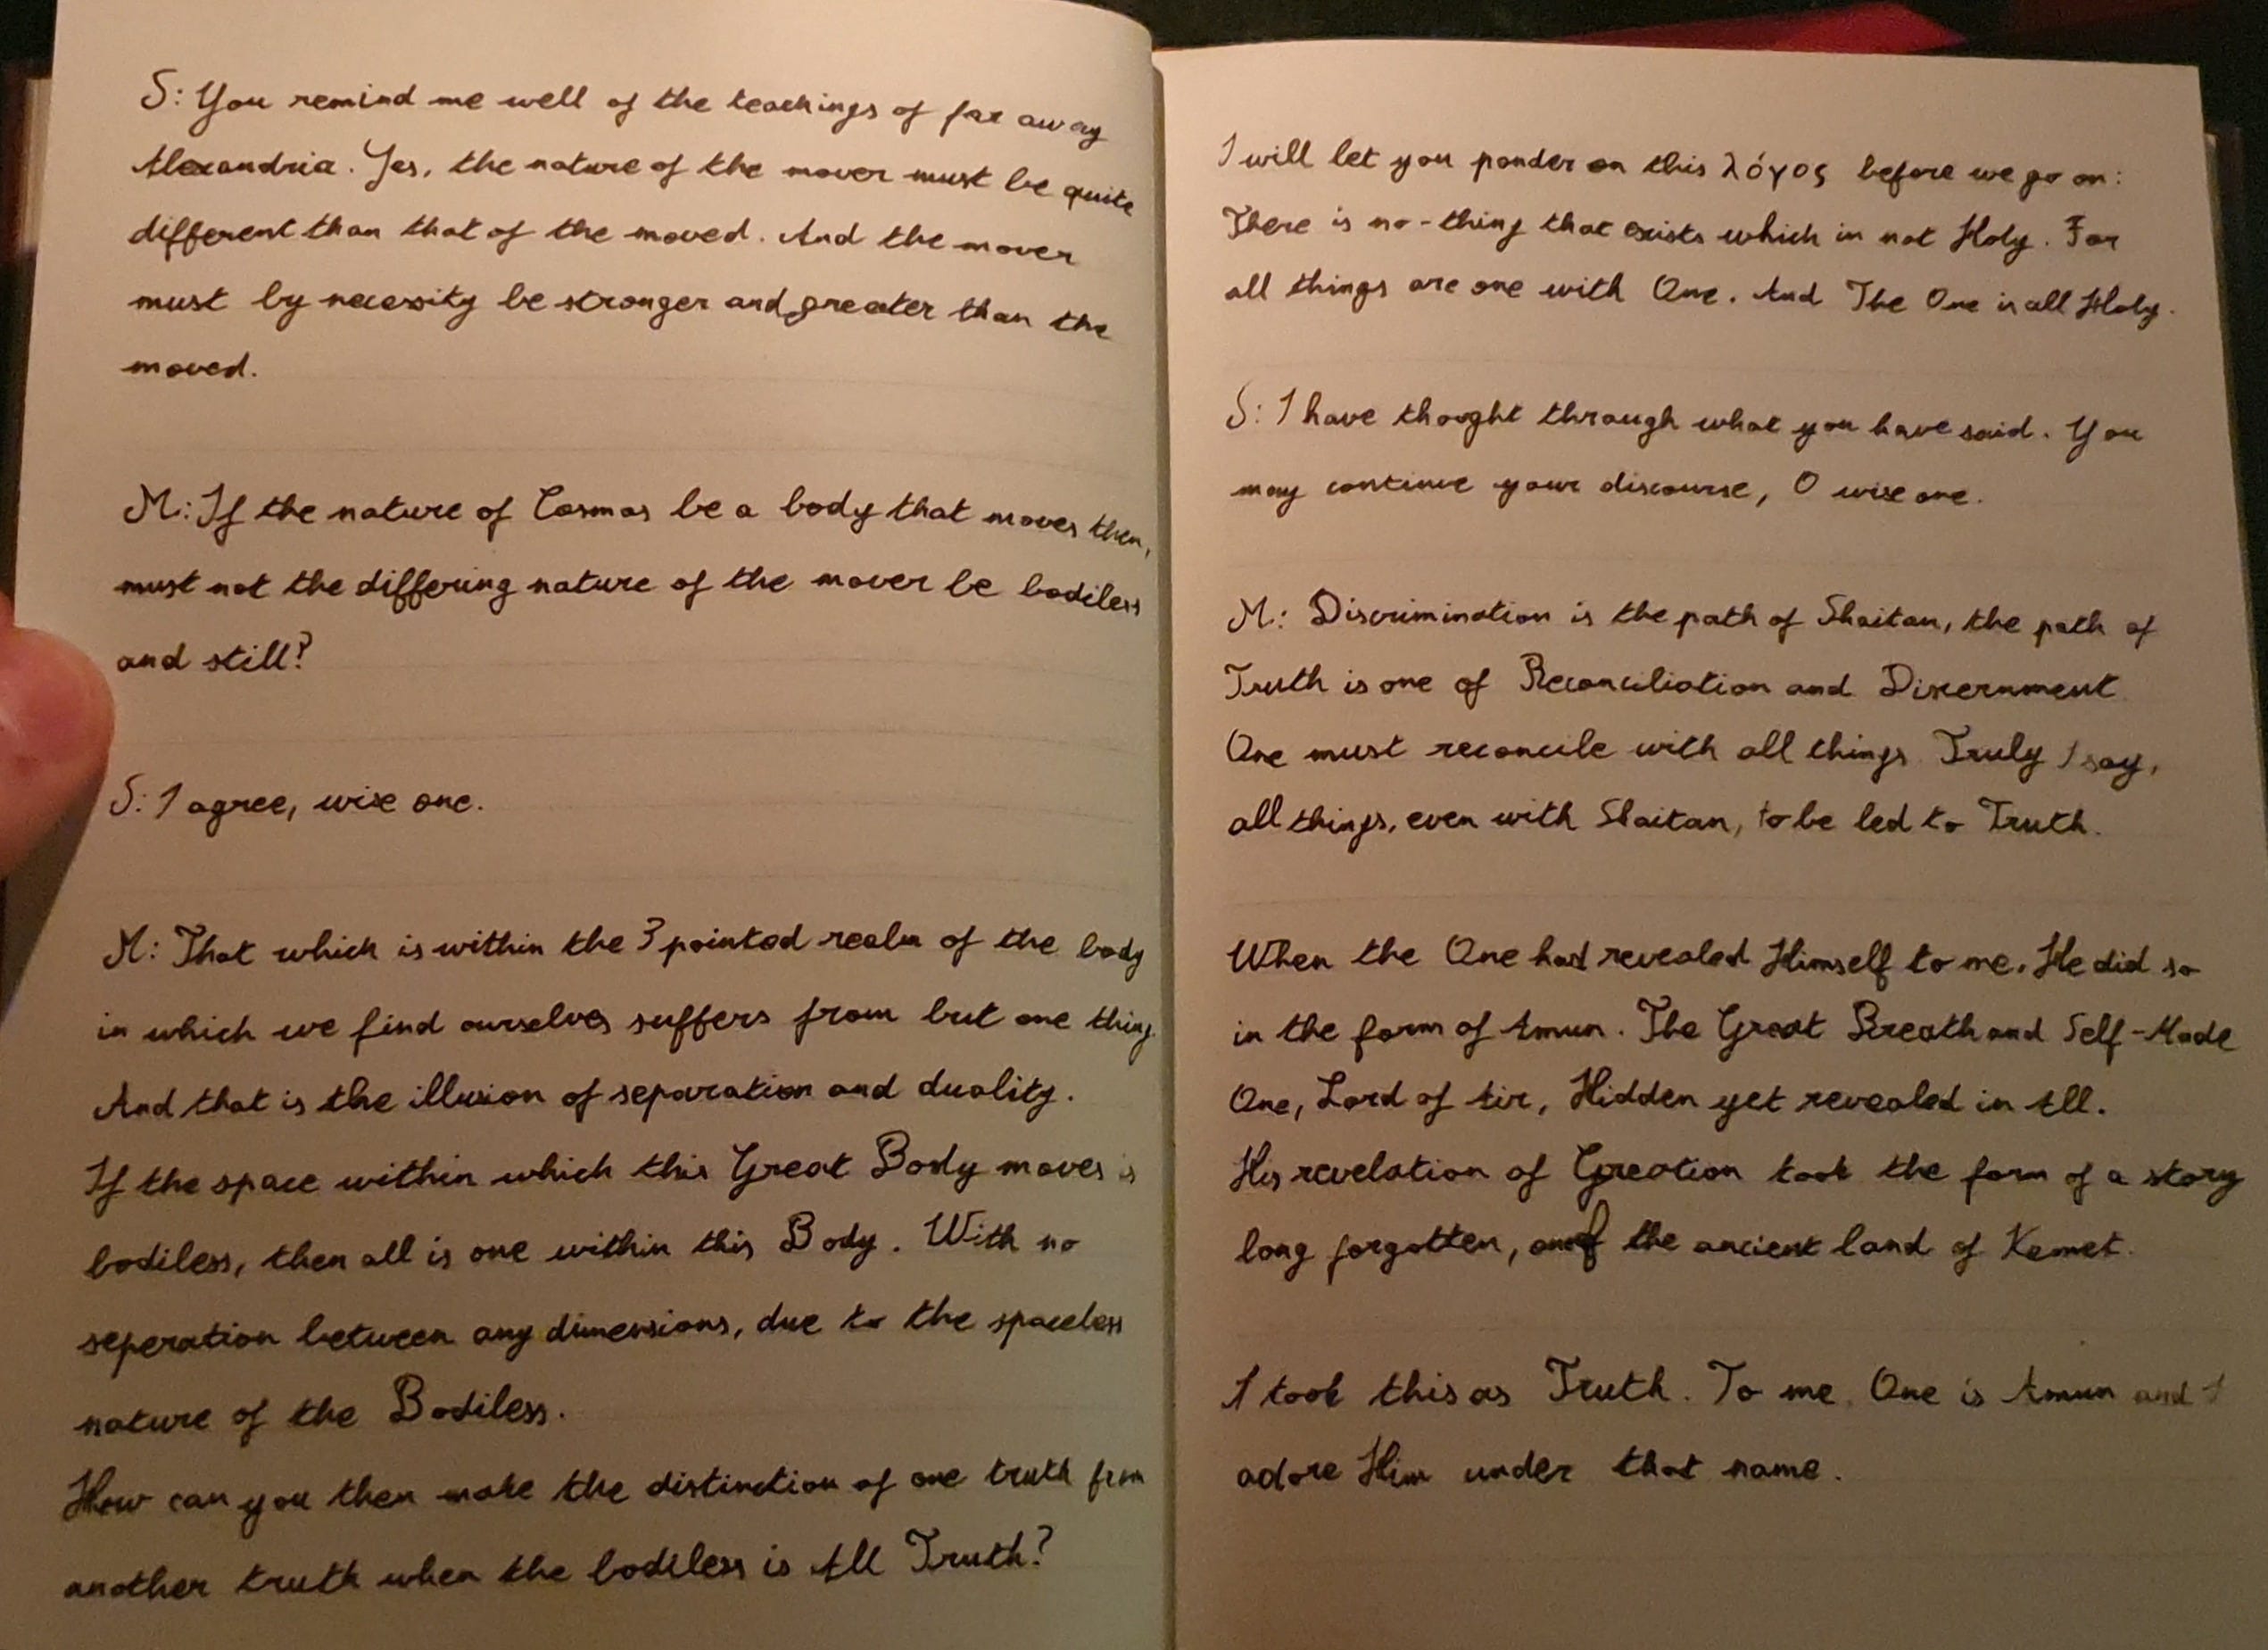 S: You remind me well of the teachings of far away
Alexandria. Yes, the nature of the mover must be quite
different than that of the moved. And the mover
must by necessity be stronger and greater than the
moved.
M: If the nature of Cosmos be a body that moves then,
must not the differing nature of the mover be bodiless
and still?
S: I agree, wise one.
M: That which is within the 3 pointed realm of the body
in which we find ourselves suffers from but one thing.
And that is the illusion of separation and duality.
If the space within which this Great Body moves is
bodiless, then all is one within this Body. With no
seperation between any dimensions, due to the spaceless
nature of the Bodiless.
How can you then make the distinction of one truth from
another truth when the bodiless is All Truth?
I will let you ponder on this λόγος before we go on:
There is no-thing that exists which in not Holy. For
all things are one with One. And The One is all Holy.
S: I have thought through what you have said. You
may continue your discourse, O wise one.
M: Discrimination is the path of Shaitan, the path of
Truth is one of Reconciliation and Discernment
One must reconcile with all things. Truly I say,
all things, even with Shaitan, to be led to Truth.
When the One had revealed Himself to me. He did so
in the form of Amun. The Great Breath and Self-Made
One, Lord of Air, Hidden yet revealed in All.
His revelation of Creation took the form of a story
long forgotten, of the ancient land of Kemet.
I took this as Truth. To me, One is Amun and I
adore Him under that name.